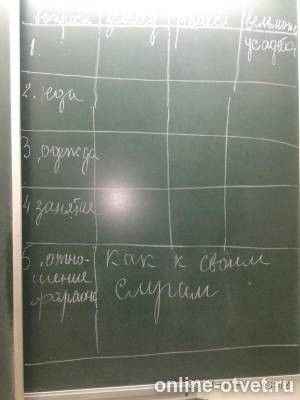 вопросы
вельмож
1.
усадьба
2. еда
3. одежда
4 занятие
5. отно-
шение
фараона
как к своим
слугам
online-otvet.ru